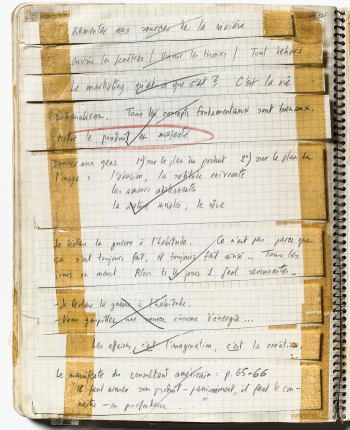 Remonter aux sources de la rivière
Ouvrir les fenêtres / / Tout dehors
Le marketing qu'est-ce que c'est ? C'est la vie
Tous les concepts fondamentaux sont banaux.
Mettre le produit en majesté
Donner aux gens 1°) sur le plan du produit 2°) sur le plan de
l'image : l'évasion, la enivrante
les amours
la , le rêve
Je déclare la guerre à l'habitude. Ce n'est pas parce que
ça s'est toujours fait, et toujours fait ainsi... Tous les
jours on meurt. tous les jours il faut ressusciter.
- Je déclare la guerre à l'habitude.
- Vous gaspillez une source énorme d'énergie...
Les affaires, c'est l'imagination, c'est la création
Le manifeste du consultant américain : p. 65-66
"Il faut aimer son produit - , il faut le con-
naître - en profondeur. "